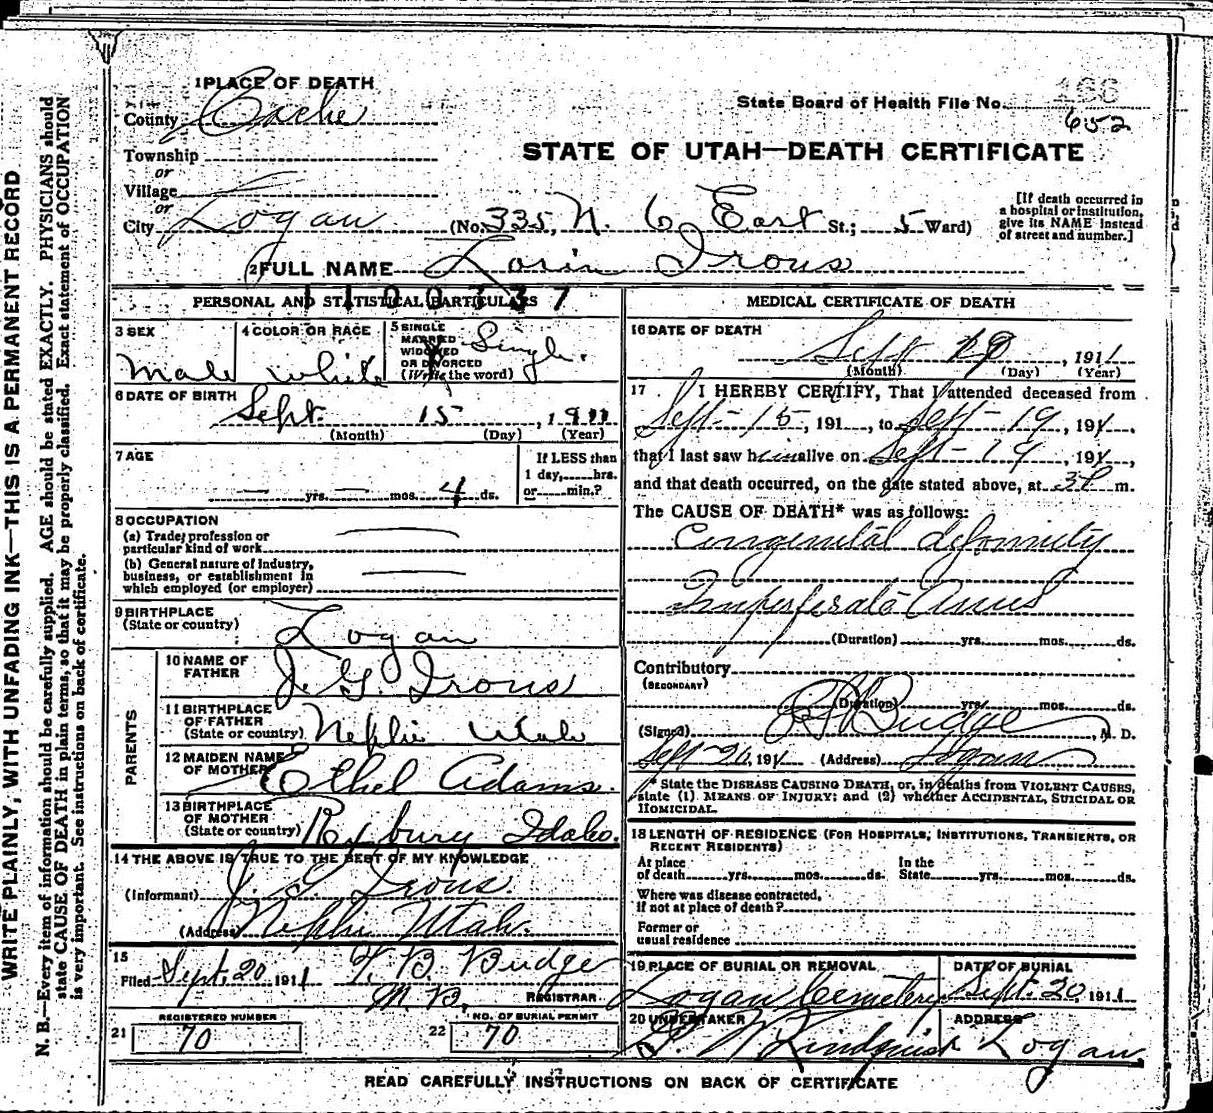 WRITE PLAINLY, WITH UNFADING INK—THIS IS A PERMANENT RECORD
N. B.—Every item of information should be carefully supplied. AGE should be stated EXACTLY. PHYSICIANS should
state CAUSE OF DEATH in plain terms, so that it may be properly classified. Exact statement of OCCUPATION
is very important. See instructions on back of certificate.
1 PLACE OF DEATH
County Cache
State Board of Health File No. 166
652
Township
or
Village
or
STATE OF UTAH—DEATH CERTIFICATE
City Logan (No. 335, N. 6 East St.; 5 Ward)
[If death occurred in
a hospital or institution,
give its NAME instead
of street and number.]
2 FULL NAME Lorin Irons
PERSONAL AND STATISTICAL PARTICULARS
3 SEX
Male
4 COLOR OR RACE
White
5 SINGLE
MARRIED
WIDOWED
OR DIVORCED
(Write the word)
Single.
6 DATE OF BIRTH
Sept. 15, 1911
(Month) (Day) (Year)
7 AGE
— yrs. — mos. 4 ds.
If LESS than
1 day, hrs.
or min.?
8 OCCUPATION
(a) Trade, profession or
particular kind of work
(b) General nature of industry,
business, or establishment in
which employed (or employer)
9 BIRTHPLACE
(State or country)
Logan
PARENTS
10 NAME OF
FATHER
J. G. Irons
11 BIRTHPLACE
OF FATHER
(State or country)
Nephi Utah
12 MAIDEN NAME
OF MOTHER
Ethel Adams.
13 BIRTHPLACE
OF MOTHER
(State or country)
Rexbury Idaho.
14 THE ABOVE IS TRUE TO THE BEST OF MY KNOWLEDGE
(Informant) J. G. Irons.
(Address) Nephi Utah.
15
Filed Sept. 20 1911 T. B. Budge
M. D. REGISTRAR
21 REGISTERED NUMBER
70
22 NO. OF BURIAL PERMIT
70
MEDICAL CERTIFICATE OF DEATH
16 DATE OF DEATH
Sept 19, 1911
(Month) (Day) (Year)
17 I HEREBY CERTIFY, That I attended deceased from
Sept - 15, 191 , to Sept - 19, 1911,
that I last saw him alive on Sept - 19, 1911,
and that death occurred, on the date stated above, at 3 P m.
The CAUSE OF DEATH* was as follows:
Congenital deformity
Imperforate Anus
(Duration) yrs. mos. ds.
Contributory
(SECONDARY)
(Duration) yrs. mos. ds.
(Signed) Budge, M. D.
Sept 20, 1911 (Address) Logan
* State the DISEASE CAUSING DEATH, or, in deaths from VIOLENT CAUSES,
state (1) MEANS OF INJURY; and (2) whether ACCIDENTAL, SUICIDAL OR
HOMICIDAL.
18 LENGTH OF RESIDENCE (FOR HOSPITALS, INSTITUTIONS, TRANSIENTS, OR
RECENT RESIDENTS)
At place
of death yrs. mos. ds.
In the
State yrs. mos. ds.
Where was disease contracted,
if not at place of death?
Former or
usual residence
19 PLACE OF BURIAL OR REMOVAL
Logan Cemetery
DATE OF BURIAL
Sept. 20 1911
20 UNDERTAKER
Lindquist
ADDRESS
Logan
READ CAREFULLY INSTRUCTIONS ON BACK OF CERTIFICATE